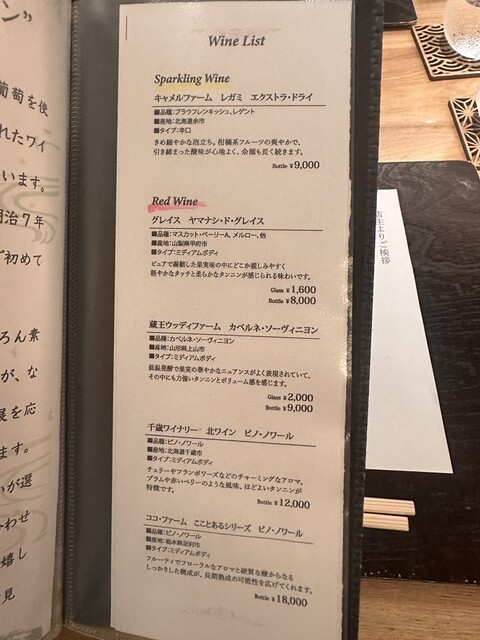 ン”
葡萄を使
れたワイ
います。
明治7年
初めて
ろん素
が、な
展を応
ます。
いが選
わせ
嬉し
見
Wine List
Sparkling Wine
キャメルファーム レガミ エクストラ・ドライ
■品種：ブラウフレンキッシュ、レゲント
■産地：北海道余市
■タイプ：辛口
きめ細やかな泡立ち。柑橘系フルーツの爽やかで、
引き締まった酸味が心地よく、余韻も長く続きます。
Bottle ¥9,000
Red Wine
グレイス ヤマナシ・ド・グレイス
■品種：マスカット・ベーリーA、メルロー、他
■産地：山梨県甲府市
■タイプ：ミディアムボディ
ピュアで凝縮した果実味の中にどこか親しみやすく
軽やかなタッチと柔らかなタンニンが感じられる味わいです。
Glass ¥1,600
Bottle ¥8,000
蔵王ウッディファーム カベルネ・ソーヴィニヨン
■品種：カベルネ・ソーヴィニヨン
■産地：山形県上山市
■タイプ：ミディアムボディ
低温発酵で果実の華やかなニュアンスがよく表現されていて、
その中にも力強いタンニンとボリューム感を感じます。
Glass ¥2,000
Bottle ¥9,000
千歳ワイナリー 北ワイン ピノ・ノワール
■品種：ピノ・ノワール
■産地：北海道千歳市
■タイプ：ミディアムボディ
チェリーやフランボワーズなどのチャーミングなアロマ。
プラムや赤いベリーのような風味、ほどよいタンニンが
特徴です。
Bottle ¥12,000
ココ・ファーム こことあるシリーズ ピノ・ノワール
■品種：ピノ・ノワール
■産地：栃木県足利市
■タイプ：ミディアムボディ
フルーティでフローラルなアロマと硬質な酸からなる
しっかりした構成が、長期熟成の可能性を広げてくれます。
Bottle ¥18,000
店主よりご挨拶